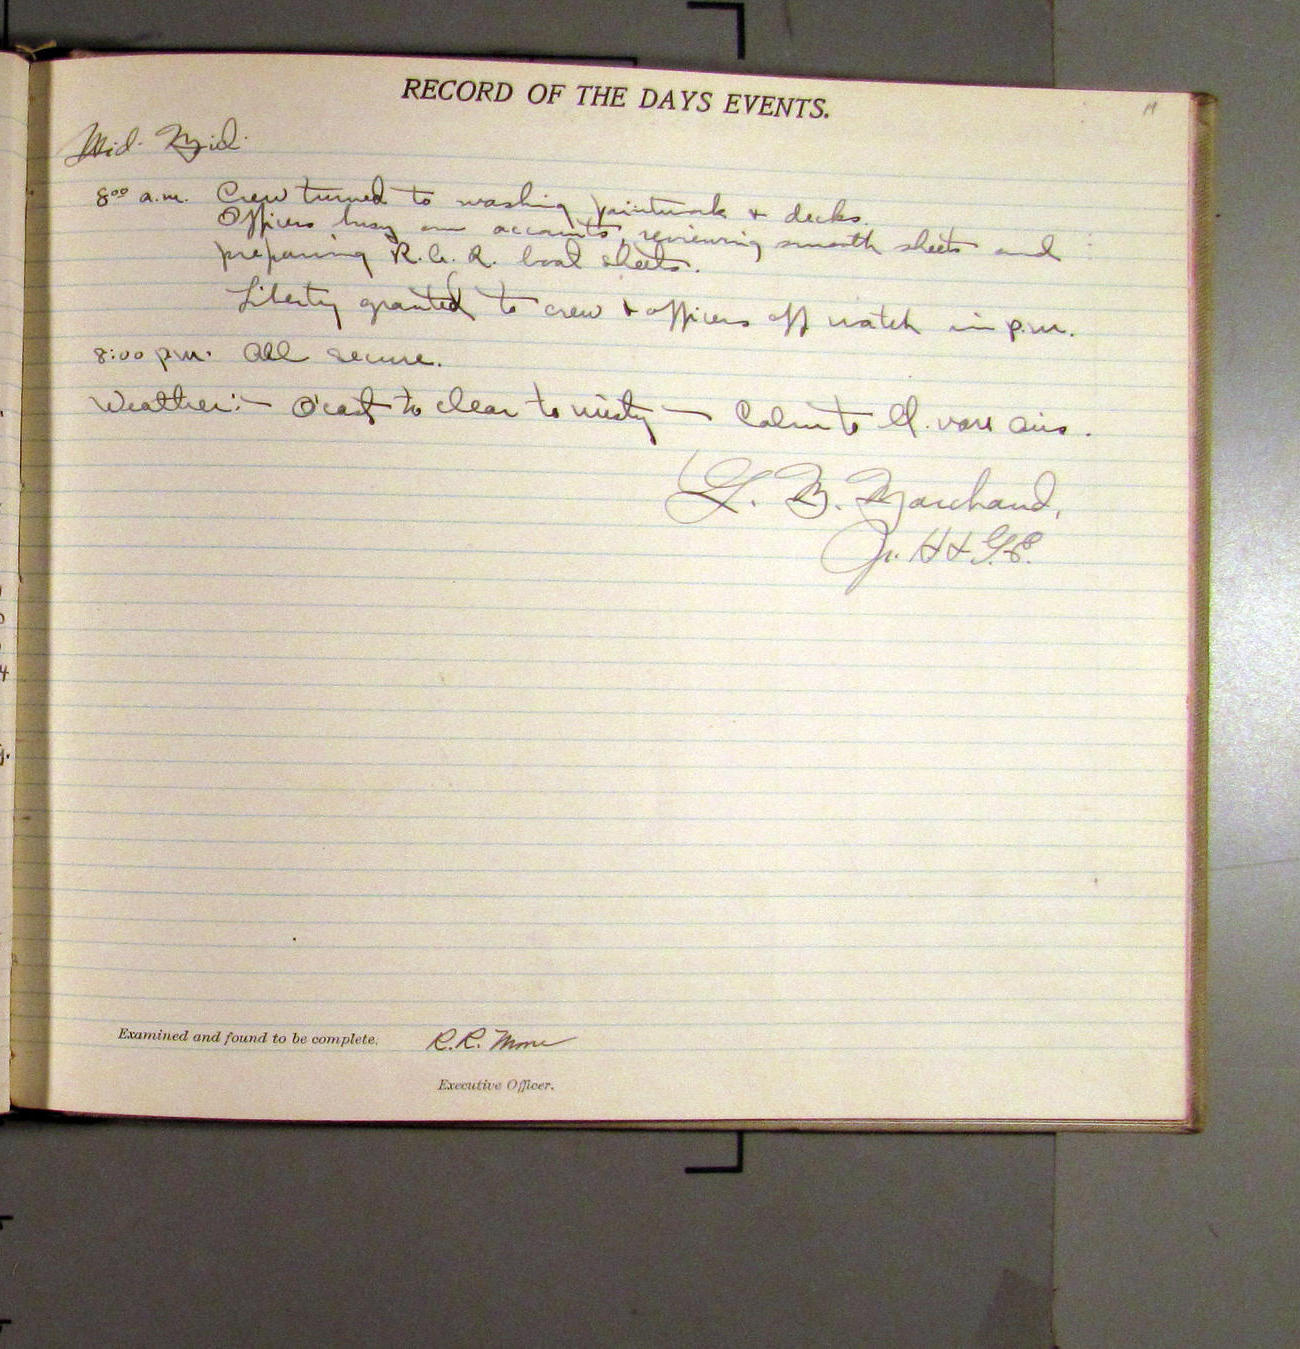 RECORD OF THE DAYS EVENTS.
Mid. Mid.
8⁰⁰ a.m. Crew turned to washing paintwork & decks.
Officers busy on accounts, reviewing smooth sheets and
preparing R.A.R. boat sheets.
Liberty granted to crew & officers off watch in p.m.
8:00 p.m. All secure.
Weather:— O'cast to clear to misty — Calm to lt. vars airs.
G. M. Marchand,
Jr. H & G.E.
Examined and found to be complete. R.R. Moore
Executive Officer.